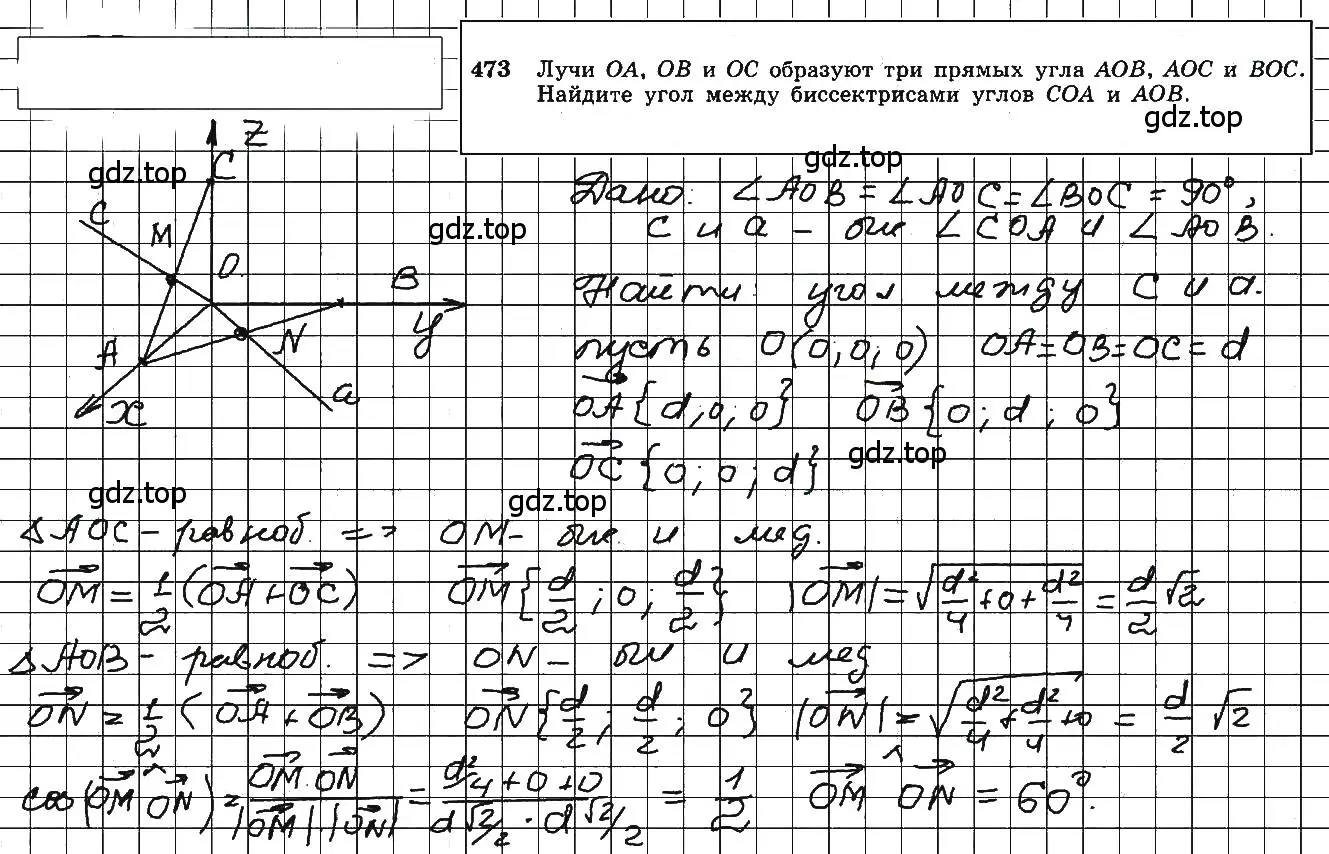 473 Лучи OA, OB и OC образуют три прямых угла AOB, AOC и BOC.
Найдите угол между биссектрисами углов COA и AOB.
gdz.top
gdz.top
gdz.top
gdz.top
gdz.top
gdz.top
gdz.top
Z
C
c
M
O
B
y
A
N
X
a
Дано: ∠AOB = ∠AOC = ∠BOC = 90°,
c и a – бис ∠COA и ∠AOB.
Найти: угол между c и a.
пусть O(0;0;0) OA=OB=OC=d
$\overrightarrow{OA}${d;0;0} $\overrightarrow{OB}${0; d; 0}
$\overrightarrow{OC}${0; 0; d}
△AOC – равноб. => OM – бис и мед.
$\overrightarrow{OM} = \frac{1}{2}(\overrightarrow{OA}+\overrightarrow{OC})$ $\overrightarrow{OM}\{\frac{d}{2}; 0; \frac{d}{2}\}$ $|\overrightarrow{OM}| = \sqrt{\frac{d^2}{4}+0+\frac{d^2}{4}} = \frac{d}{2}\sqrt{2}$
△AOB – равноб. => ON – бис и мед
$\overrightarrow{ON} = \frac{1}{2}(\overrightarrow{OA}+\overrightarrow{OB})$ $\overrightarrow{ON}\{\frac{d}{2}; \frac{d}{2}; 0\}$ $|\overrightarrow{ON}| = \sqrt{\frac{d^2}{4}+\frac{d^2}{4}+0} = \frac{d}{2}\sqrt{2}$
$\cos(\overrightarrow{OM}\,\hat{}\,\overrightarrow{ON}) = \frac{\overrightarrow{OM} \cdot \overrightarrow{ON}}{|\overrightarrow{OM}| |\overrightarrow{ON}|} = \frac{d^2/4+0+0}{d\sqrt{2}/2 \cdot d\sqrt{2}/2} = \frac{1}{2}$ $\overrightarrow{OM}\,\hat{}\,\overrightarrow{ON} = 60°.$